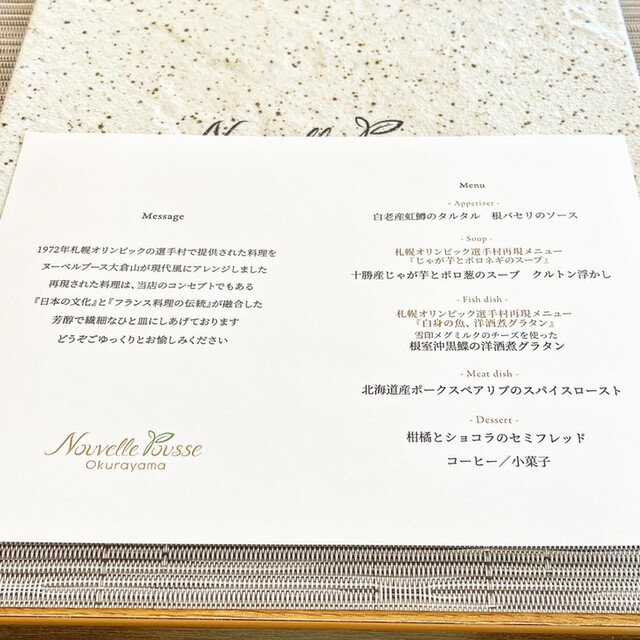 Nouvelle P
Message
1972年札幌オリンピックの選手村で提供された料理を
ヌーベルプース大倉山が現代風にアレンジしました
再現された料理は、当店のコンセプトでもある
『日本の文化』と『フランス料理の伝統』が融合した
芳醇で繊細なひと皿にしあげております
どうぞごゆっくりとお愉しみください
Nouvelle Pousse
Okurayama
Menu
- Appetizer -
白老産虹鱒のタルタル　根パセリのソース
- Soup -
札幌オリンピック選手村再現メニュー
『じゃが芋とポロネギのスープ』
十勝産じゃが芋とポロ葱のスープ　クルトン浮かし
- Fish dish -
札幌オリンピック選手村再現メニュー
『白身の魚、洋酒煮グラタン』
雪印メグミルクのチーズを使った
根室沖黒鰈の洋酒煮グラタン
- Meat dish -
北海道産ポークスペアリブのスパイスロースト
- Dessert -
柑橘とショコラのセミフレッド
コーヒー／小菓子